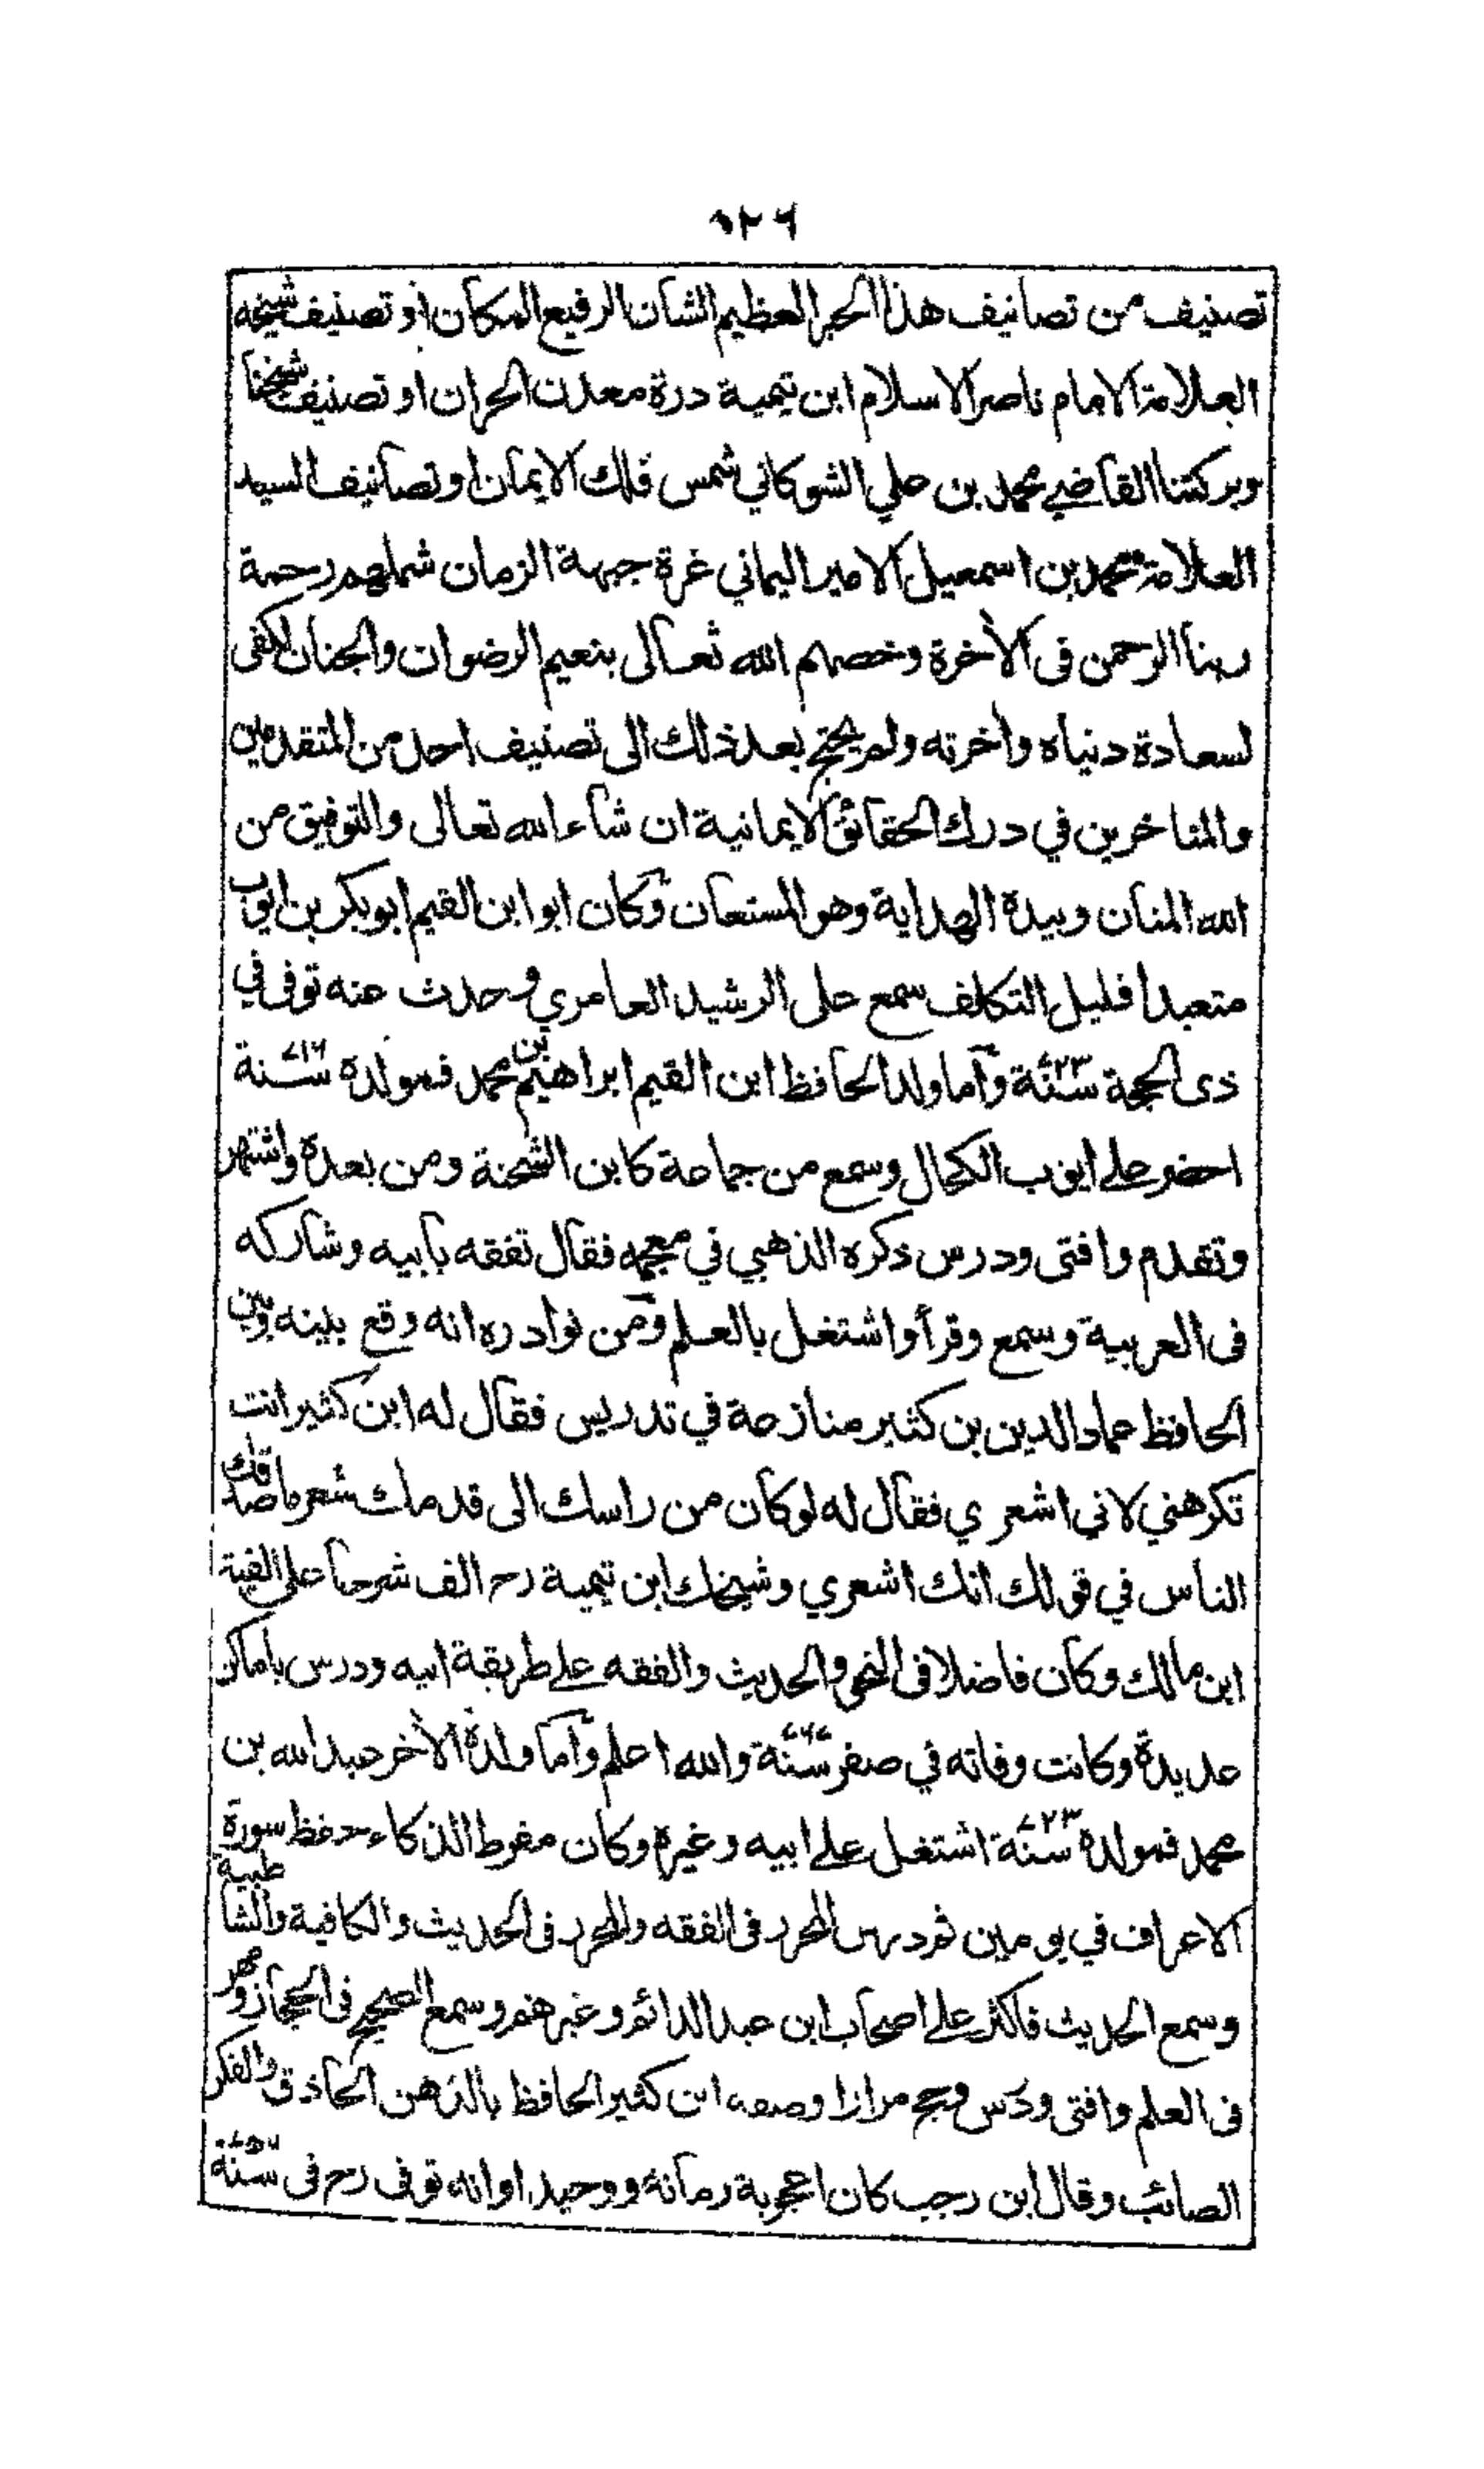 ١٢٦
تصنيف من تصانيف هذا الحبر العظيم الشان الرفيع المكان او تصنيف شيخه
العلامة الامام ناصر الاسلام ابن تيمية درة معدن الحران او تصنيف شيخنا
وبركتنا القاضي محمد بن علي الشوكاني شمس فلك الايمان او تصانيف السيد
العلامة محمد بن اسمعيل الامير اليماني غرة جبهة الزمان شملهم رحمة
ربنا الرحمن فى الأخرة وخصهم الله تعالى بنعيم الرضوان والجنان لكفى
لسعادة دنياه وأخرته ولم يحتج بعد ذلك الى تصنيف احد من المتقدمين
والمتاخرين في درك الحقائق الايمانية ان شاء الله تعالى والتوفيق من
الله المنان وبيده الهداية وهو المستعان وكان ابو ابن القيم ابو بكر بن ايوب
متعبدا قليل التكلف سمع على الرشيد العامري وحدث عنه توفى في
ذى الحجة سنة ٧٢٣ وأما ولد الحافظ ابن القيم ابراهيم بن محمد فمولده سنة ٧١٦
احضر على ايوب الكحال وسمع من جماعة كابن الشحنة ومن بعده واشتهر
وتقدم وافتى ودرس ذكره الذهبي في معجمه فقال تفقه بأبيه وشاركه
فى العربية وسمع وقرأ واشتغل بالعلم ومن نوادره انه وقع بينه وبين
الحافظ عماد الدين بن كثير منازعة في تدريس فقال له ابن كثير انت
تكرهني لاني اشعري فقال له لو كان من راسك الى قدمك شعر ما صدقك
الناس في قولك انك اشعري وشيخك ابن تيمية رح الف شرحا على الفية
ابن مالك وكان فاضلا فى النحو والحديث والفقه على طريقة ابيه ودرس باماكن
عديدة وكانت وفاته في صفر سنة ٧٦٧ والله اعلم وأما ولده الأخر عبد الله بن
محمد فمولده سنة ٧٢٣ اشتغل على ابيه وغيره وكان مفرط الذكاء حفظ سورة
الاعراف في يومين ثم درس المحرر فى الفقه والمحرر فى الحديث والكافية والشاطبية
وسمع الحديث فاكثر على اصحاب ابن عبد الدائم وغيرهم وسمع الصحيح فى الحجاز ومهر
فى العلم وافتى ودرس وحج مرارا وصفه ابن كثير الحافظ بالذهن الحاذق والفكر
الصائب وقال ابن رجب كان اعجوبة زمانه ووحيد اوانه توفى رح فى سنة